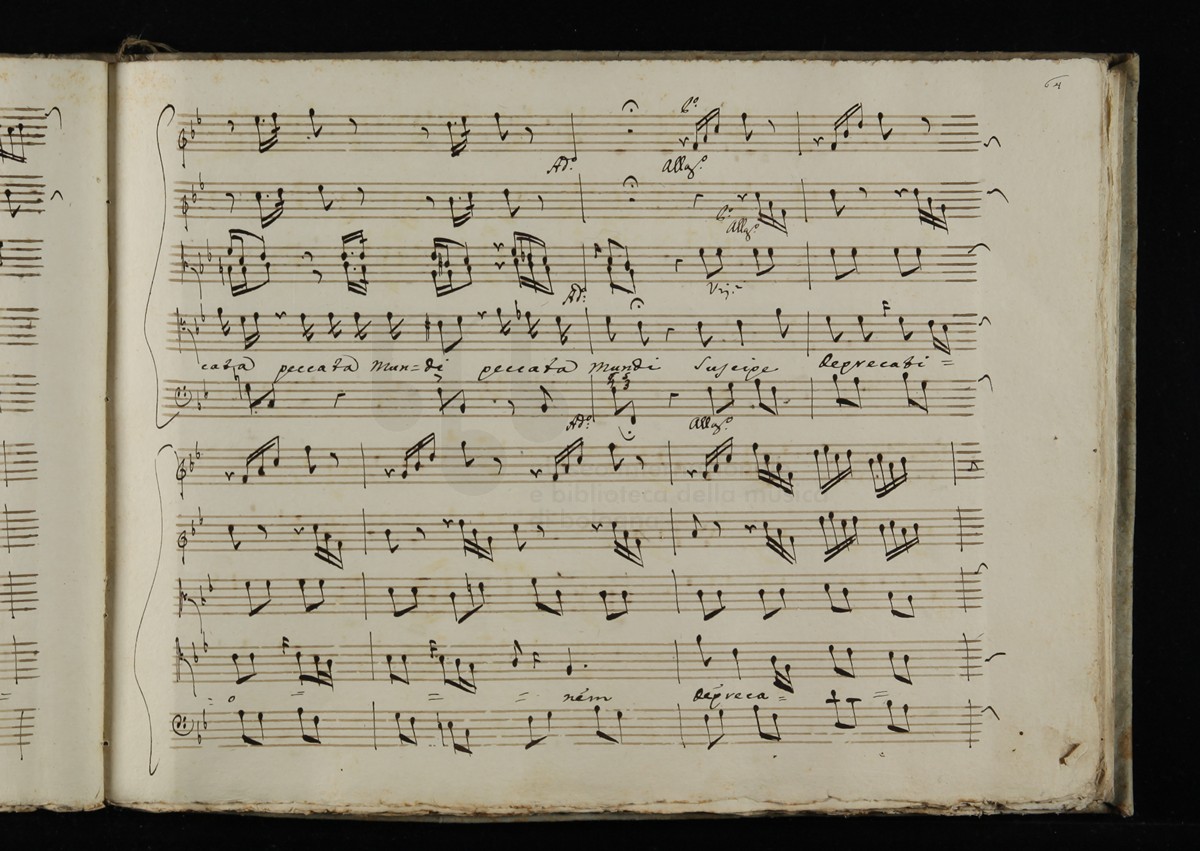 64
Ad:o
Allag:o
Allag:o
Ad:o
cata peccata Mun=di peccata mundi Suscipe deprecati=
Ad:o
Allag:o
e biblioteca della musica
di bologna
=o = = = nem depreca= =